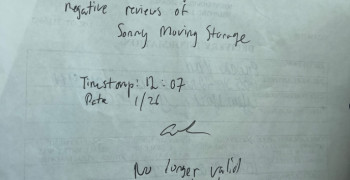 negative reviews of
Sonny Moving Storage
Timestamp: 12:07
Date 1/26
No longer valid